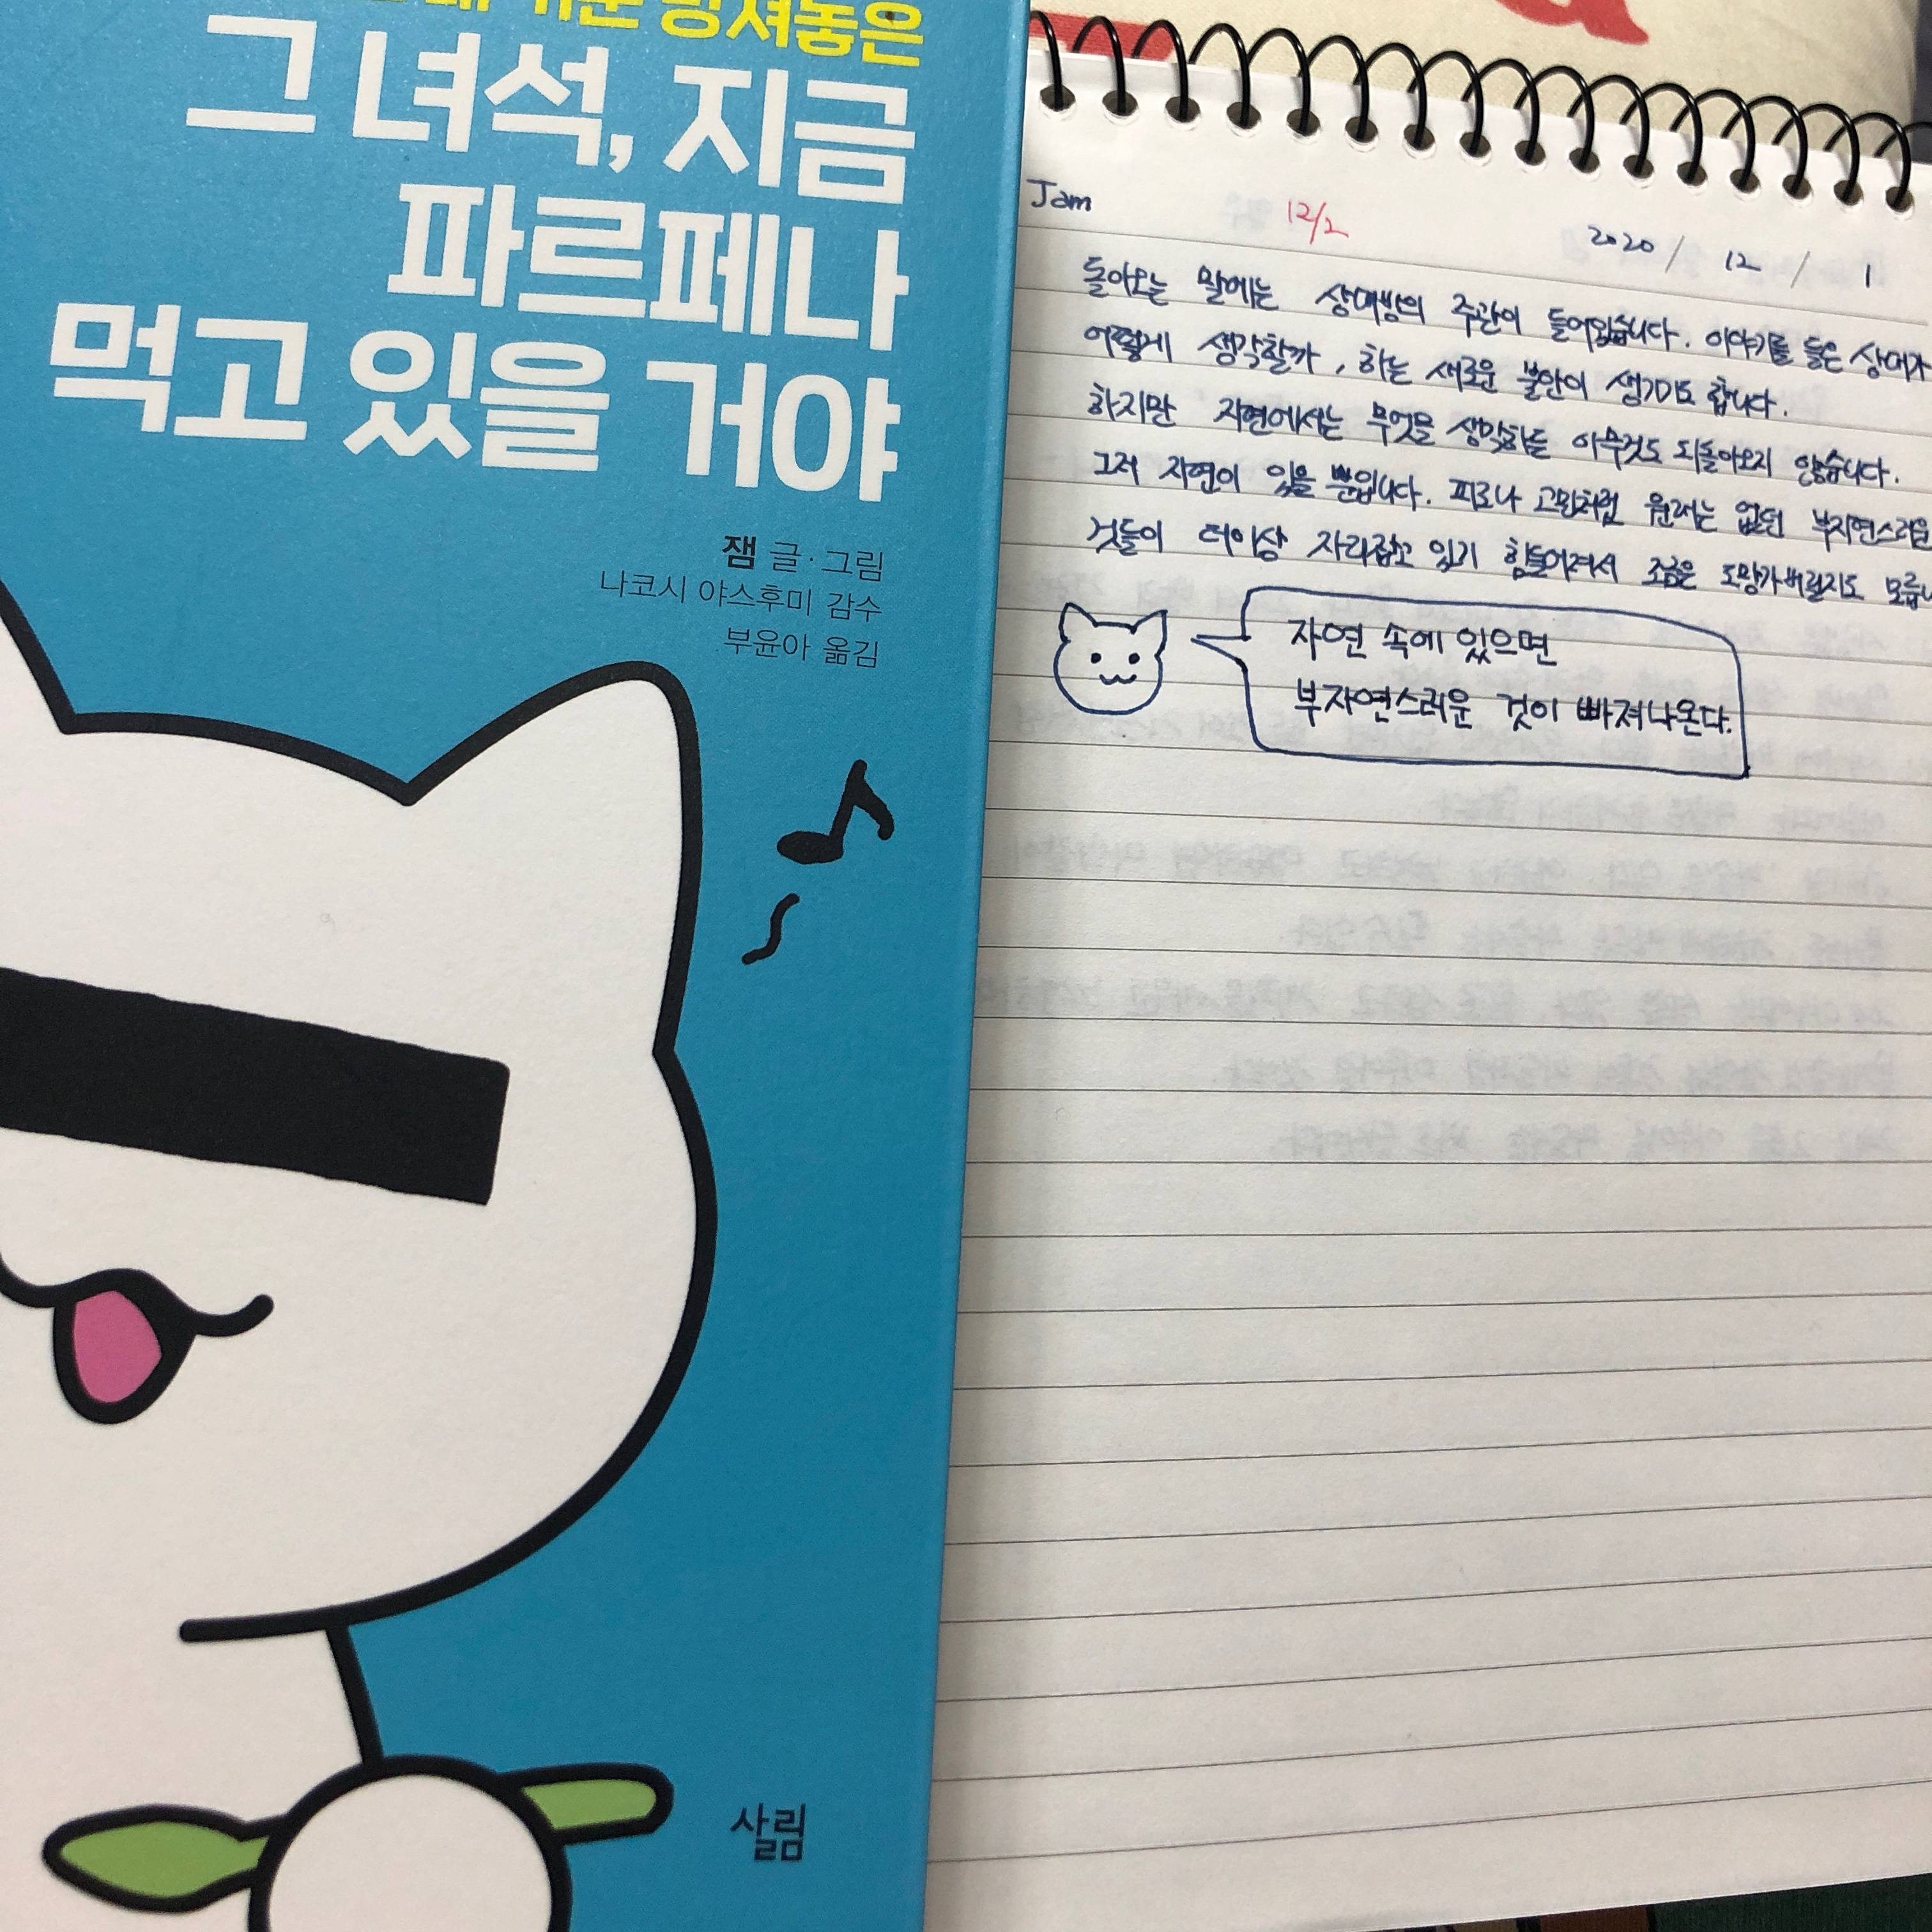 망쳐놓은
그 녀석, 지금
파르페나
먹고 있을 거야
잼 글·그림
나코시 야스후미 감수
부윤아 옮김
살림
Jam 12/2 2020 / 12 / 1
돌아오는 말에는 상대방의 주관이 들어있습니다. 이야기를 들은 상대가
어떻게 생각할까, 하는 새로운 불안이 생기기도 합니다.
하지만 자연에서는 무엇을 생각하든 아무것도 되돌아오지 않습니다.
그저 자연이 있을 뿐입니다. 피로나 고민처럼 원래는 없던 부자연스러운
것들이 더이상 자리잡고 있기 힘들어져서 조금은 도망가버릴지도 모릅니
자연 속에 있으면
부자연스러운 것이 빠져나온다.